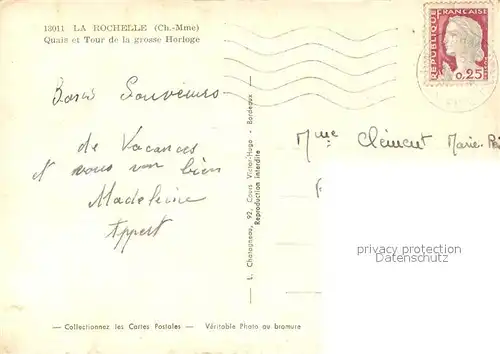 13011 LA ROCHELLE (Ch.-Mme)
Quais et Tour de la grosse Horloge
REPUBLIQUE
FRANÇAISE
0,25
Bons Souvenirs
de Vacances
et vous bien
Madeleine
Appert
Mme Clément Marie
L. Chatagneau, 92, Cours Victor-Hugo - Bordeaux
Reproduction interdite
privacy protection
Dateschutz
— Collectionnez les Cartes Postales — Véritable Photo au bromure